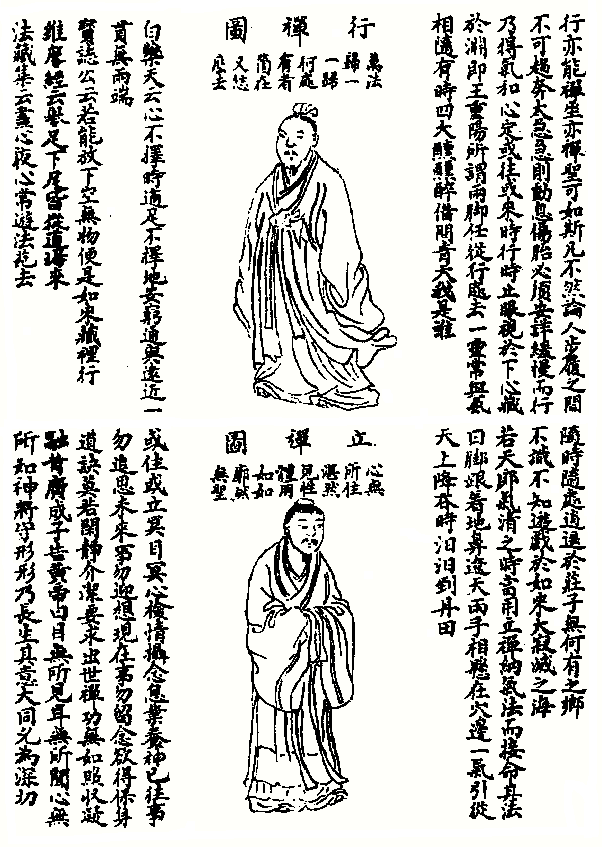 行亦能禪坐亦禪聖可如斯凡不然論人步履之間
不可趨奔太急急則動息傷胎必須安詳緩慢而行
乃得氣和心定或往或來時行時止眼視於下心藏
於淵即王重陽所謂兩脚任從行處去一靈常與氣
相隨有時四大醺醺醉借問青天我是誰
行禪圖
萬法
歸一
一歸
何處
有者
箇在
又恁
麼去
白樂天云心不擇時適足不擇地安窮通與遠近一
貫無兩端
寶誌公云若能放下空無物便是如來藏裡行
維摩經云舉足下足皆從道場來
法藏集云晝心夜心常遊法苑去
隨時隨處逍遙於莊子無何有之鄉
不識不知遊戲於如來大寂滅之海
若天朗氣清之時當用立禪納氣法而接命其法
曰脚跟着地鼻遼天兩手相懸在穴邊一氣引從
天上降吞時汩汩到丹田
立禪圖
心無
所住
湛然
見性
體用
如如
廓然
無聖
或住或立冥目冥心檢情攝念息業養神已往事
勿追思未來事勿迎想現在事勿留念欲得保身
道訣莫若閑靜介潔要求出世禪功無如照收凝
融昔廣成子告黃帝曰目無所見耳無所聞心無
所知神將守形形乃長生其意大同允為深切